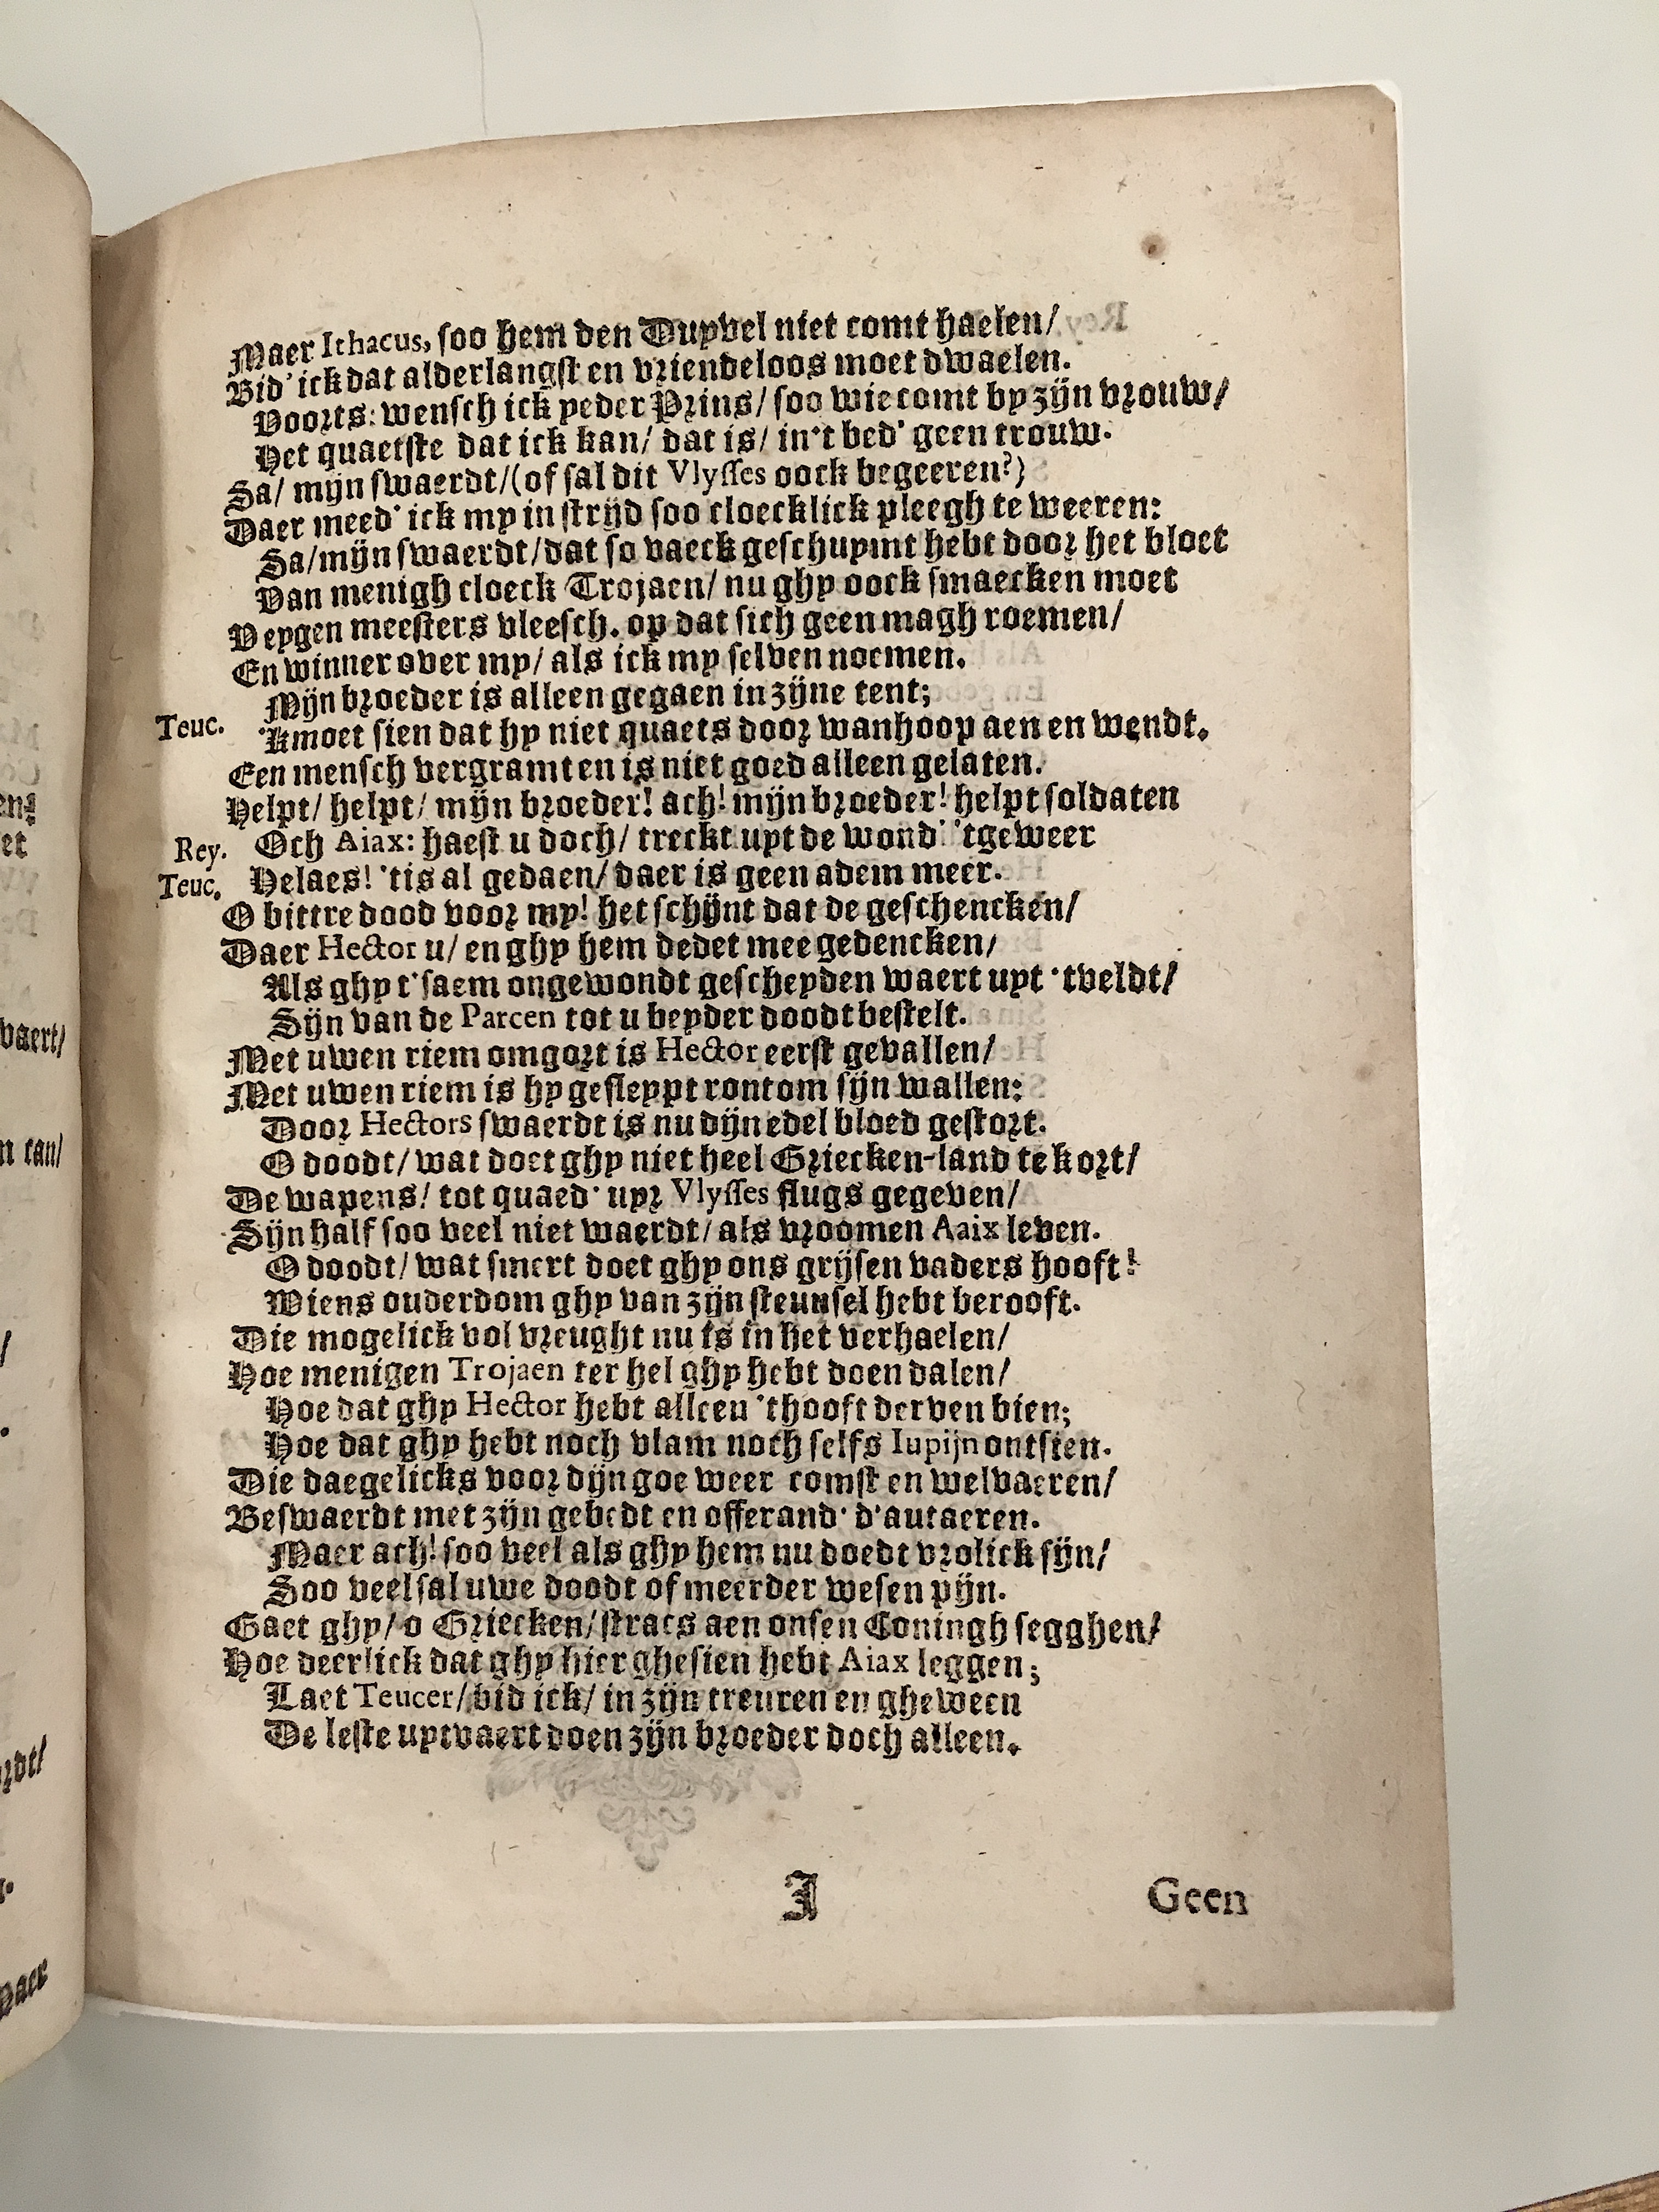 Maer Ithacus, soo hem den Duyvel niet comt haelen/
Bid' ick dat alderlangst en vriendeloos moet dwaelen.
Voorts: wensch ick yeder Prins/ soo wie comt by zijn vrouw/
Het quaetste dat ick kan/ dat is/ in't bed' geen trouw.
Sa/ mijn swaerdt/(of sal dit Vlysses oock begeeren?)
Daer meed' ick my in strijd soo cloecklick pleegh te weeren:
Sa/mijn swaerdt/dat so vaeck geschuymt hebt door het bloet
Van menigh cloeck Trojaen/ nu ghy oock smaecken moet
V eygen meesters vleesch. op dat sich geen magh roemen/
En winner over my/ als ick my selven noemen.
Mijn broeder is alleen gegaen in zijne tent;
Teuc. 'kmoet sien dat hy niet quaets door wanhoop aen en wendt.
Een mensch vergramt en is niet goed alleen gelaten.
Helpt/ helpt/ mijn broeder! ach! mijn broeder! helpt soldaten
Rey. Och Aiax: haest u doch/ treckt uyt de wond' 'tgeweer
Teuc. Helaes! 'tis al gedaen/ daer is geen adem meer.
O bittre dood voor my! het schijnt dat de geschencken/
Daer Hector u/ en ghy hem dedet mee gedencken/
Als ghy t'saem ongewondt gescheyden waert uyt 'tveldt/
Sijn van de Parcen tot u beyder doodt bestelt.
Met uwen riem omgort is Hector eerst gevallen/
Met uwen riem is hy gesleypt rontom sijn wallen:
Door Hectors swaerdt is nu dijn edel bloed gestort.
O doodt/ wat doet ghy niet heel Griecken-land te kort/
De wapens/ tot quaed' uyr Vlysses flugs gegeven/
Sijn half soo veel niet waerdt/ als vroomen Aaix leven.
O doodt/ wat smert doet ghy ons grijsen vaders hooft!
Wiens ouderdom ghy van zijn steunsel hebt berooft.
Die mogelick vol vreught nu is in het verhaelen/
Hoe menigen Trojaen ter hel ghy hebt doen dalen/
Hoe dat ghy Hector hebt alleen 'thooft derven bien;
Hoe dat ghy hebt noch vlam noch selfs Iupijn ontsien.
Die daegelicks voor dijn goe weer comst en welvaeren/
Beswaerdt met zijn gebedt en offerand' d'autaeren.
Maer ach! soo veel als ghy hem nu doedt vrolick sijn/
Soo veel sal uwe doodt of meerder wesen pijn.
Gaet ghy/ o Griecken/ stracs aen onsen Coningh segghen/
Hoe deerlick dat ghy hier ghesien hebt Aiax leggen;
Laet Teucer/ bid ick/ in zijn treuren en gheween
De leste uytvaert doen zijn broeder doch alleen.
I Geen